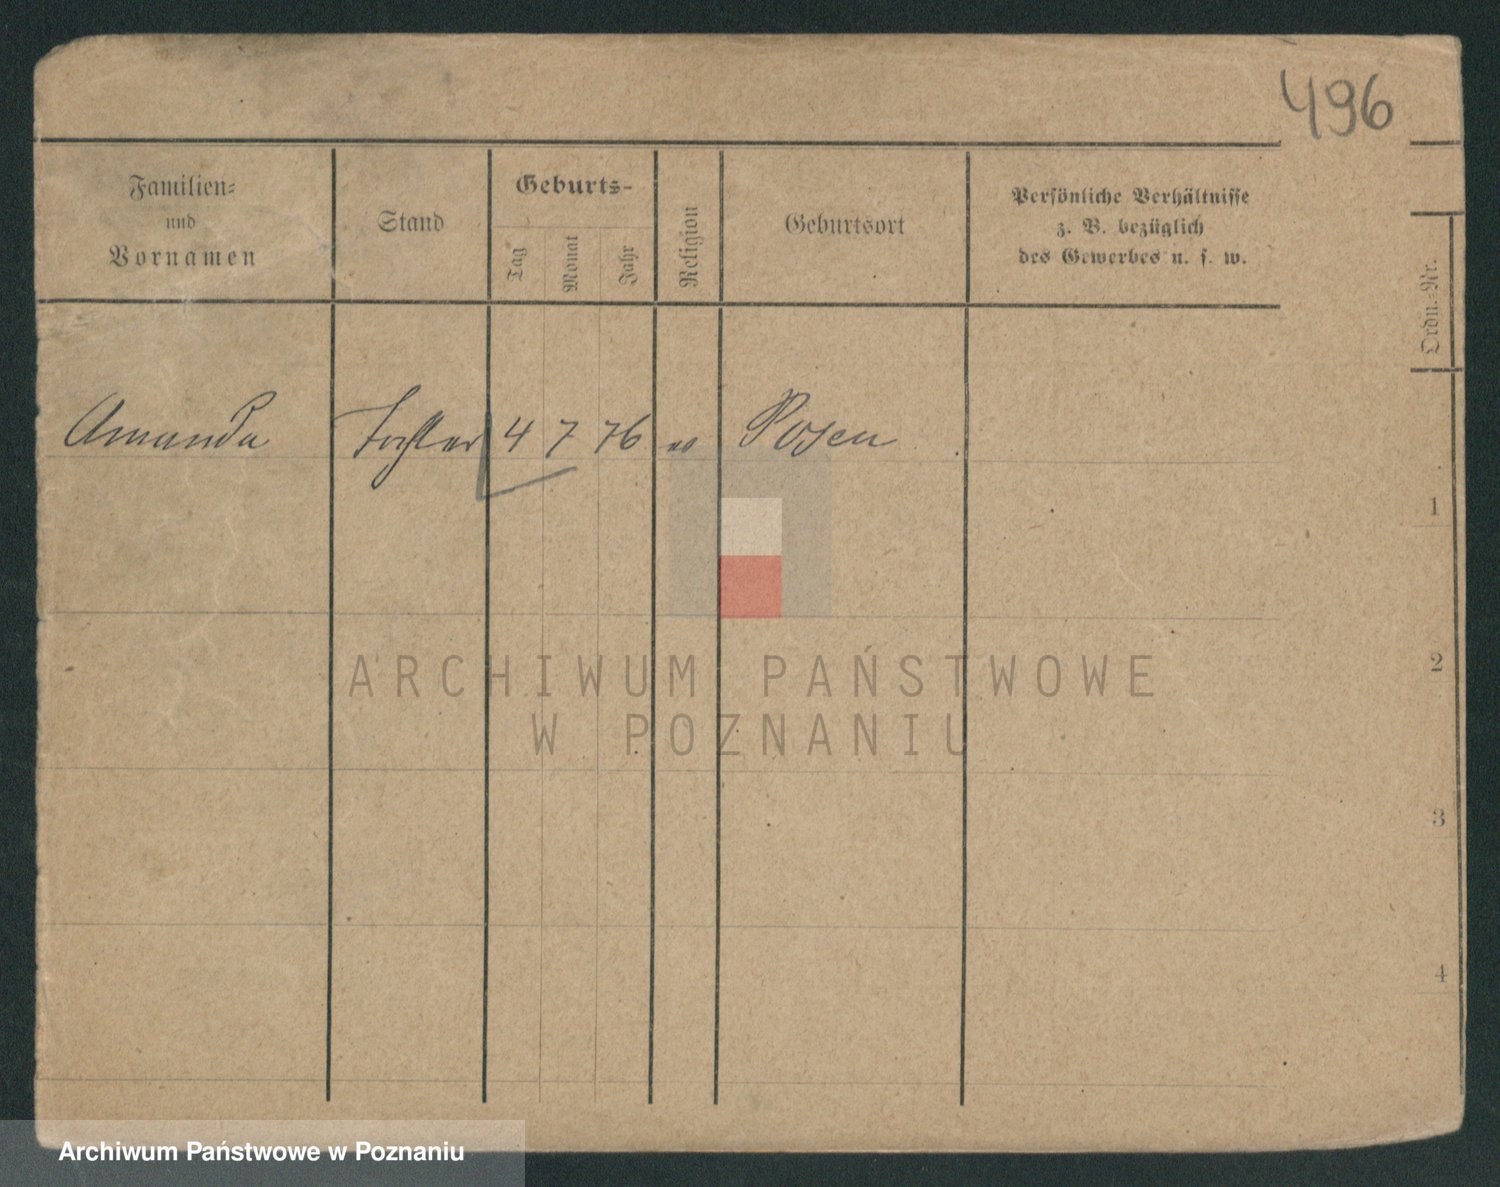 496
Familien-
und
Vornamen
Stand
Geburts-
Tag
Monat
Jahr
Religion
Geburtsort
Persönliche Verhältnisse
z. B. bezüglich
des Gewerbes u. s. w.
Ordn.-Nr.
Amanda Tochter 4 7 76 Posen
1
2
3
4
ARCHIWUM PAŃSTWOWE
W POZNANIU
Archiwum Państwowe w Poznaniu